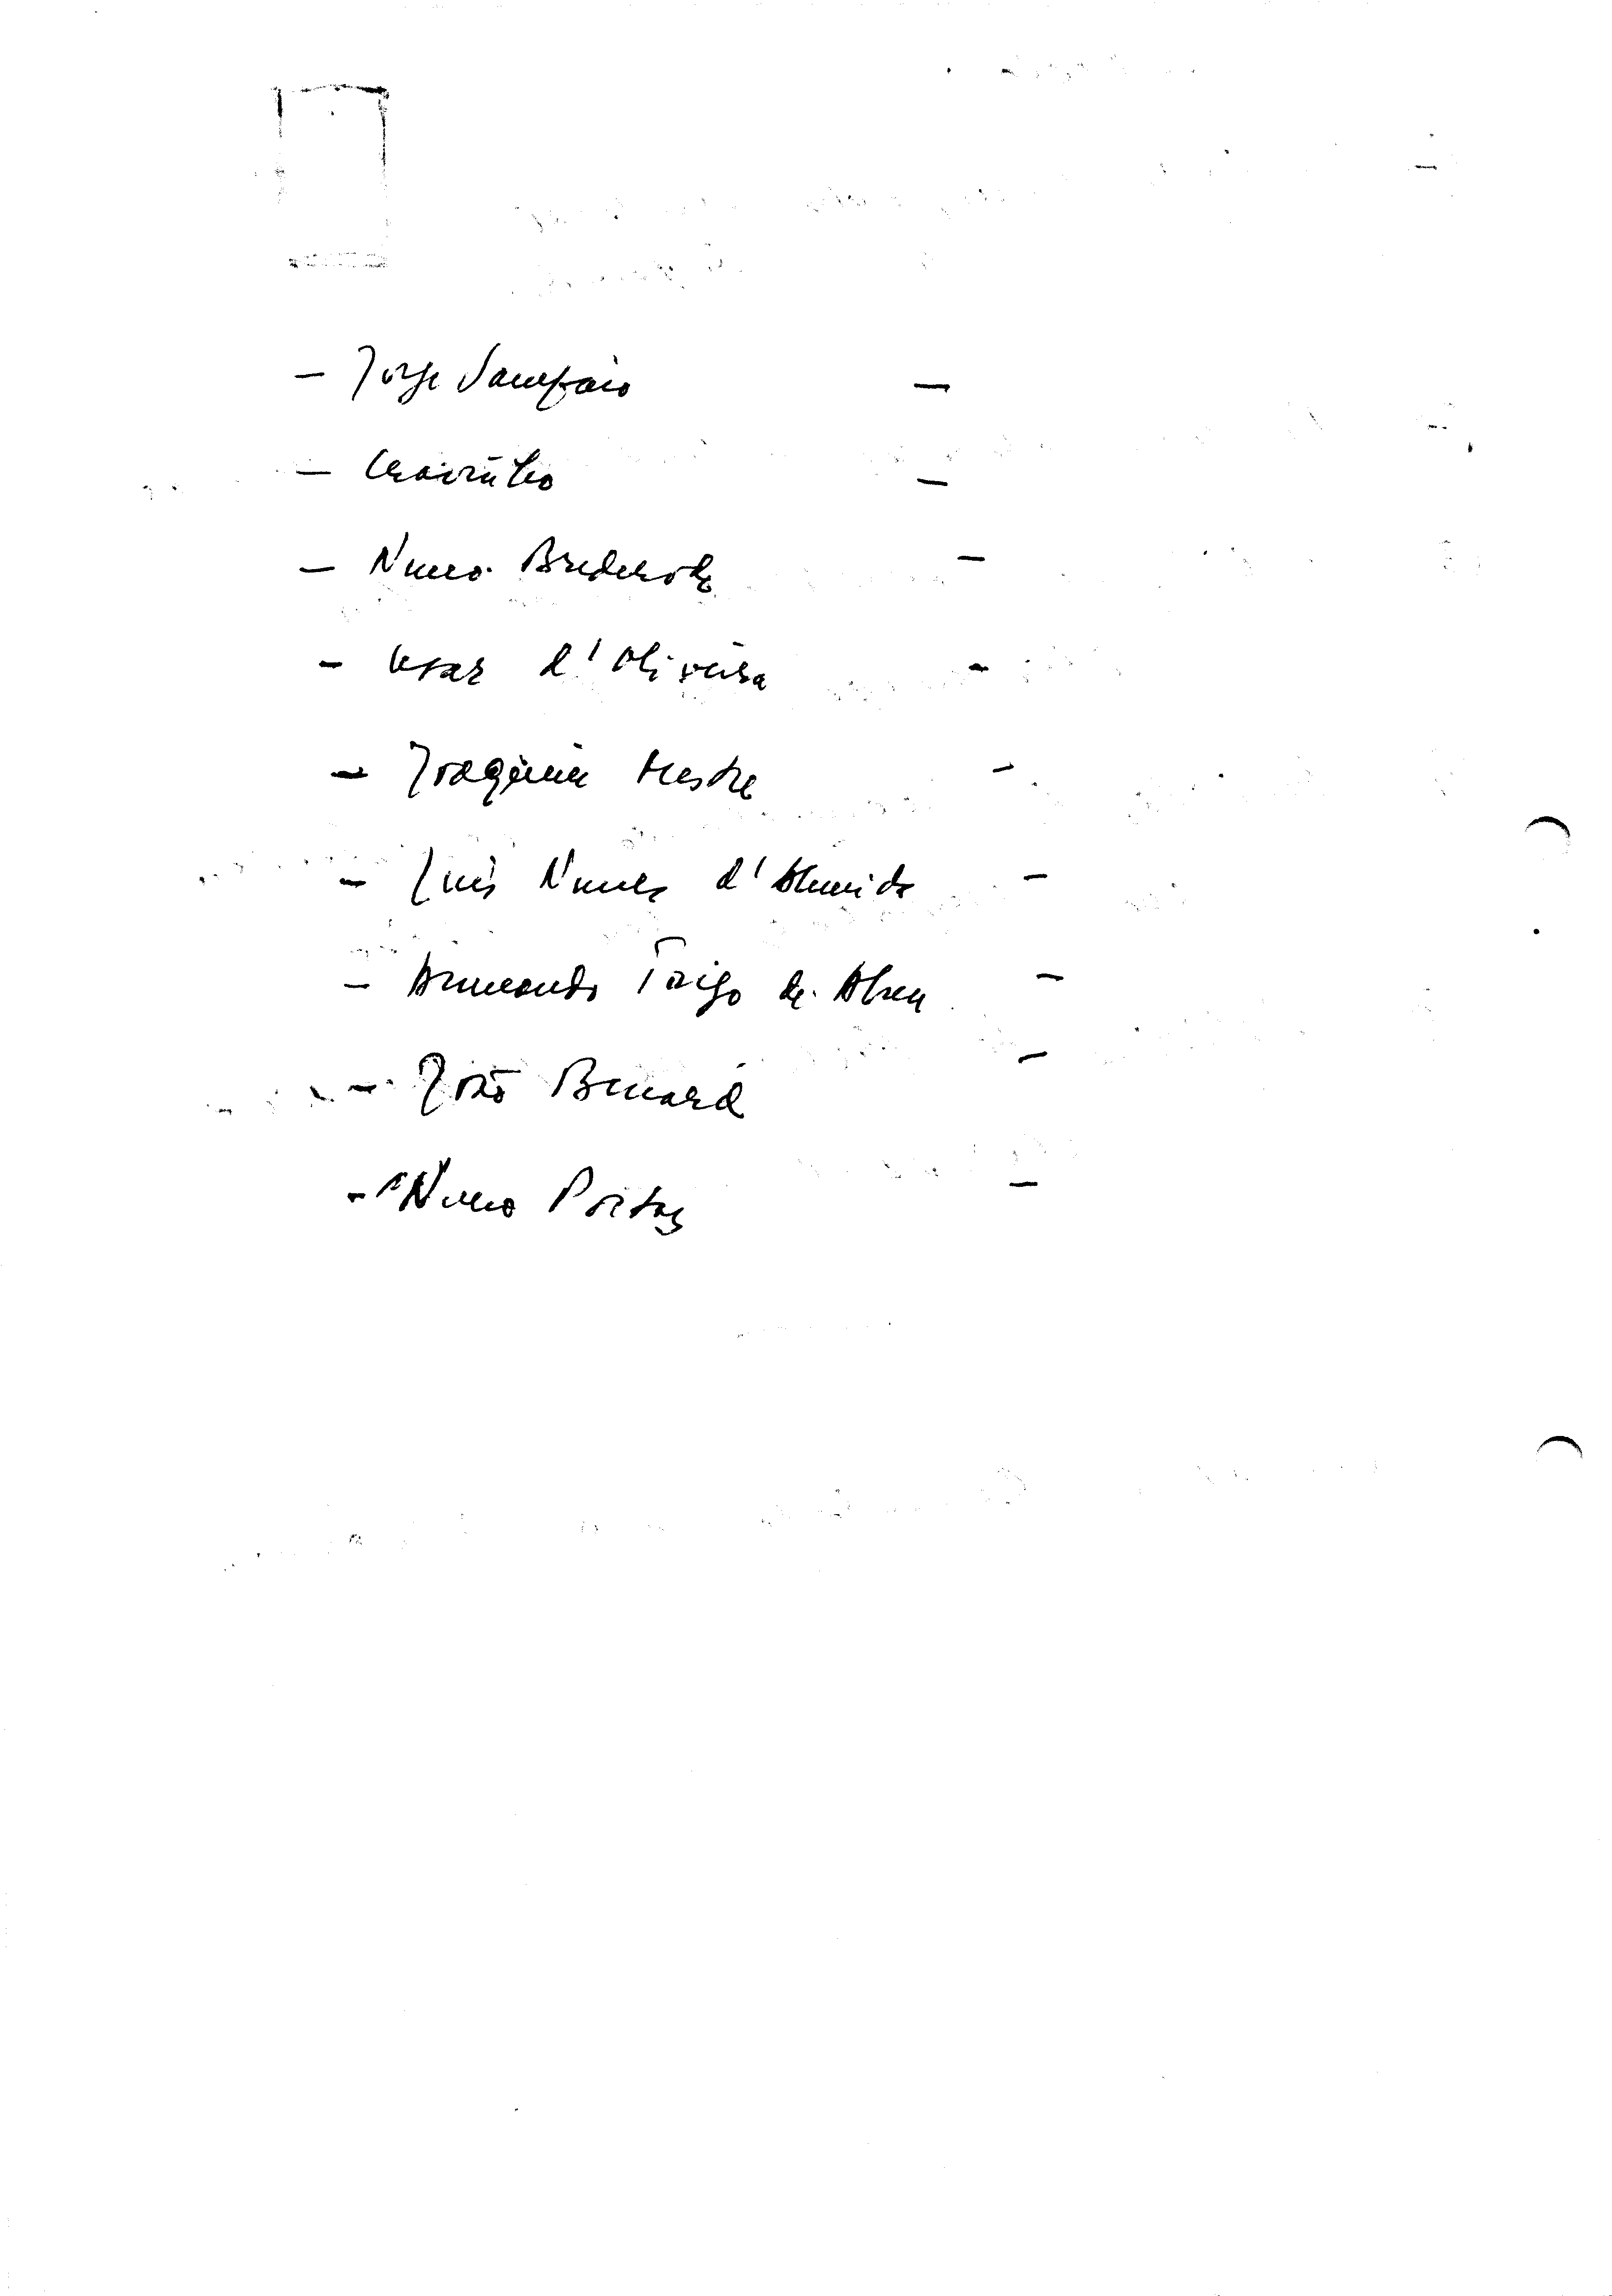 - Jorge Sampaio -
- Cravinho -
- Nuno Brederode -
- César d'Oliveira -
- Joaquim Mestre -
- Luís Nunes d'Almeida -
- Armando Trigo de Abreu -
- João Benard -
- Nuno Portas -